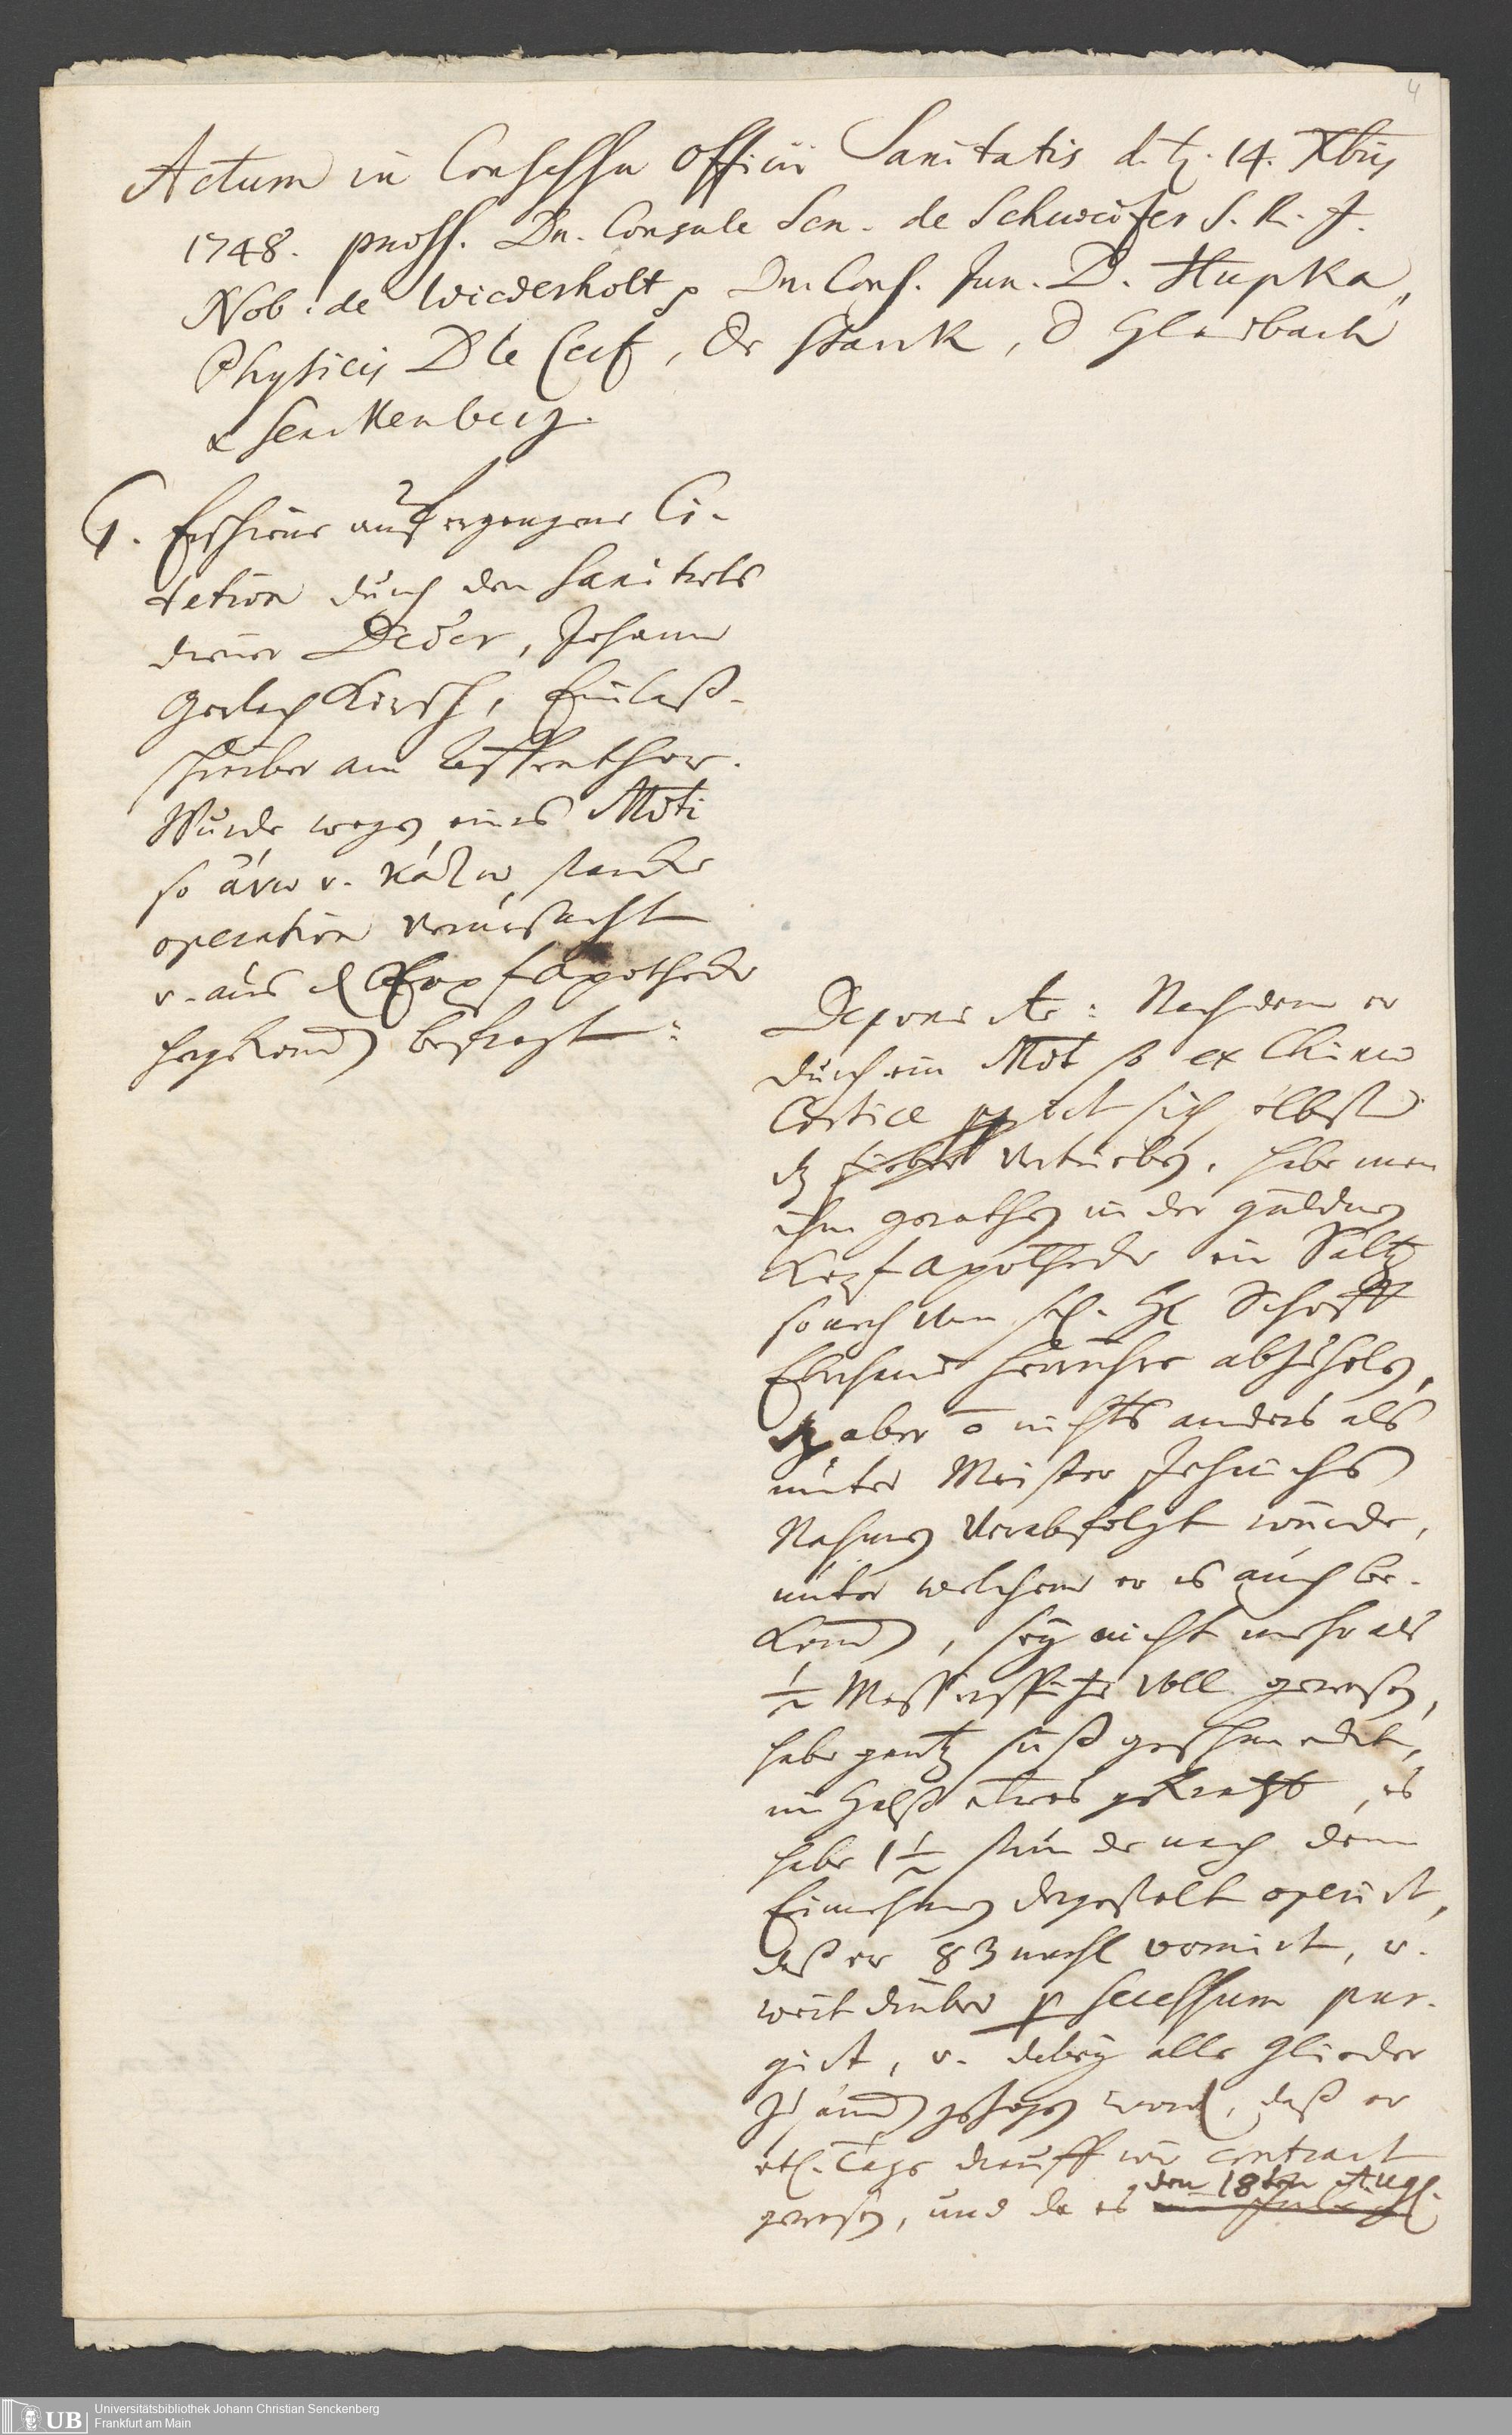 4
Actum in Consessu Officii Sanitatis d. 14. Xbris
1748. præss. Dn. Consule Sen. de Schweitzer S. R. I.
Nob. de Wiederholt, Dn. Cons. Jun. D. Hupka,
Physicis D le Cerf, Dr Starck, D Gladbach
& Senckenberg.
Erschiene auf ergangene Ci-
tation durch den Sanitäts
diener Deder, Johann
Gerlach Kirsch, Einlaß-
schreiber am
Wurde wegen eines Mdti
so ἄνω u. κάτω starcke
operation verursacht
u. aus d Kopf Apothecke
hergekomen befragt:
Deponirte: Nachdem er
durch ein Mdt so ex Chinæ
Cortice sich selbst
dz Fieber vertrieben, habe man
ihm gerathen in der güldnen
Kopf Apothecke ein Saltz
so noch vom sel. H. Schöff
Eberhard herrühre abzuholen,
dz aber nichts anders als
unter Meister
Nahmen verabfolgt würde,
unter welchem er es auch be-
komen, sey nicht mehr als
½ Messerspitze voll gewesen,
habe gantz süß geschmeckt,
im Halß etwas gekratzt, es
habe 1½ stunde nach dem
Einnehmen dergestalt operirt,
daß er 83 mahl vomirt, u.
weit drüber p secessum pur-
girt, u. dabey alle Glieder
zusamen gezogen word, daß er
etl. Tage drauff wie contract
gewesen, und da es den 18ten Aug.
Universitätsbibliothek Johann Christian Senckenberg
Frankfurt am Main
UB